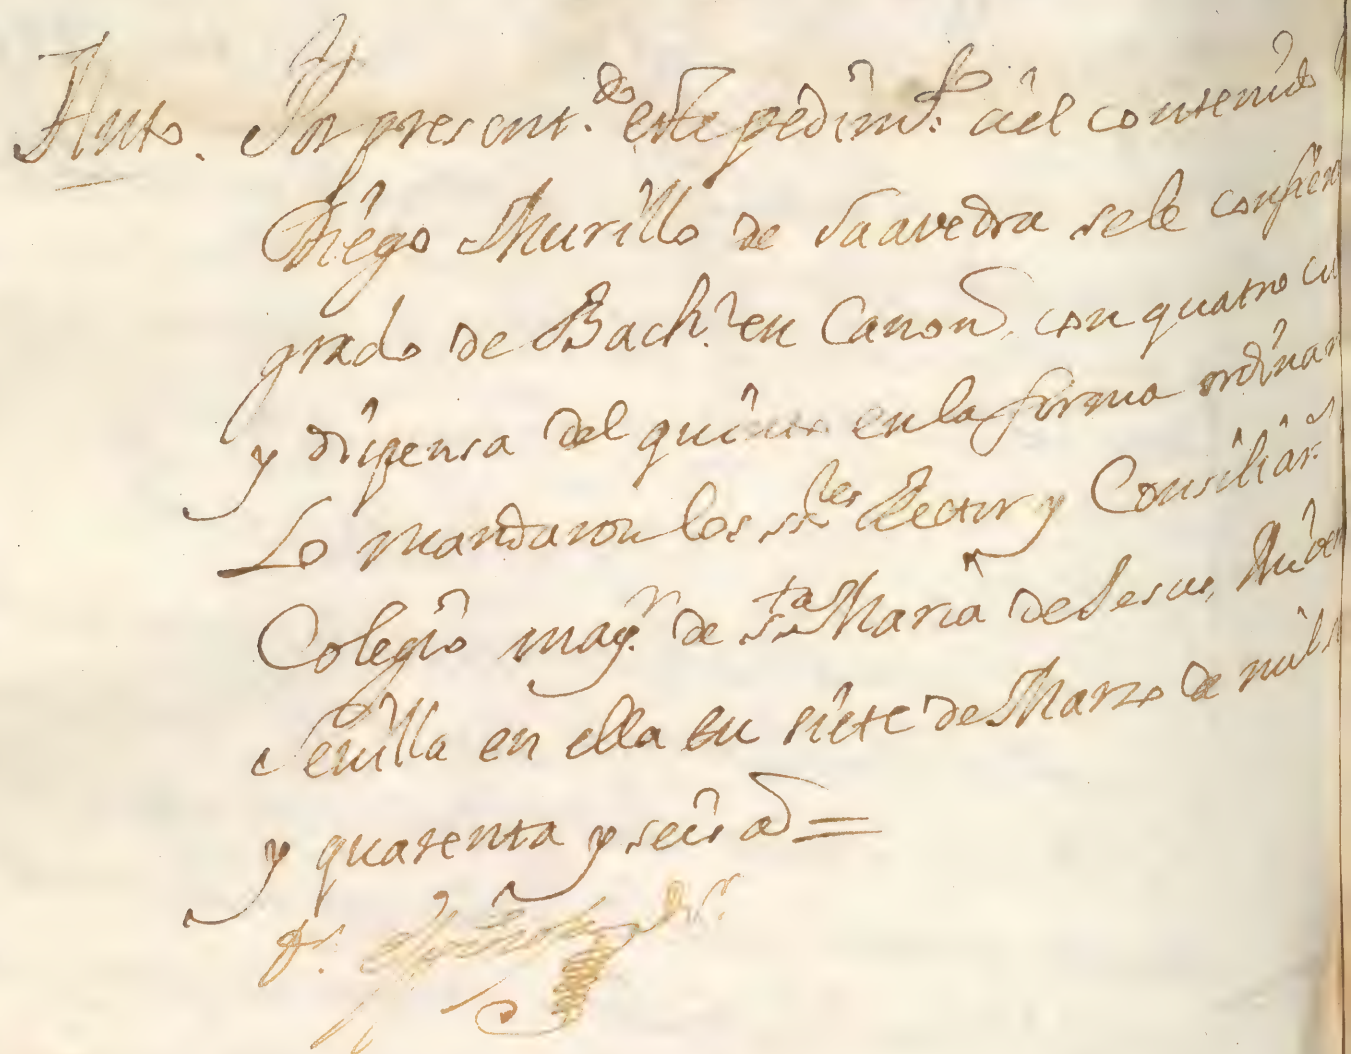 Auto. Por present.do este pedim.to a el contenido
Diego Murillo de Saavedra se le confier
grado de Bach.r en Canon con quatro cu
y dispensa del quinto en la forma ordinar
Lo mandaron los ss.res Rector y Consiliar.
Colegio may.r de S.ta Maria de Jesus,
Sevilla en ella en siete de Marzo de mil s
y quarenta y seis a =